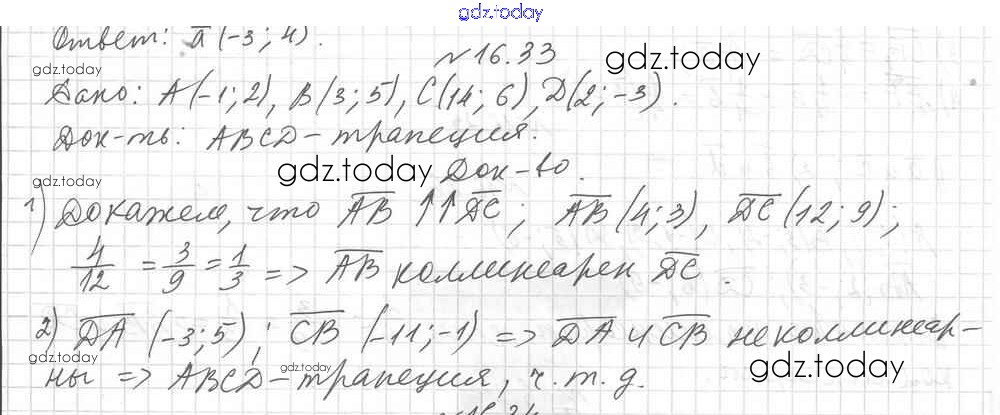 gdz.today
Ответ: a̅ (-3; 4).
№16.33
gdz.today
gdz.today
Дано: A(-1; 2), B(3; 5), C(14; 6), D(2; -3).
Док-ть: ABCD - трапеция.
gdz.today Док-во.
gdz.today
1) Докажем, что A̅B̅ ↑↑ D̅C̅; A̅B̅ (4; 3), D̅C̅ (12; 9);
4/12 = 3/9 = 1/3 => A̅B̅ коллинеарен D̅C̅.
2) D̅A̅ (-3; 5); C̅B̅ (-11; -1) => D̅A̅ и C̅B̅ не коллинеар-
gdz.today
gdz.today
gdz.today
ны => ABCD - трапеция, ч.т.д.